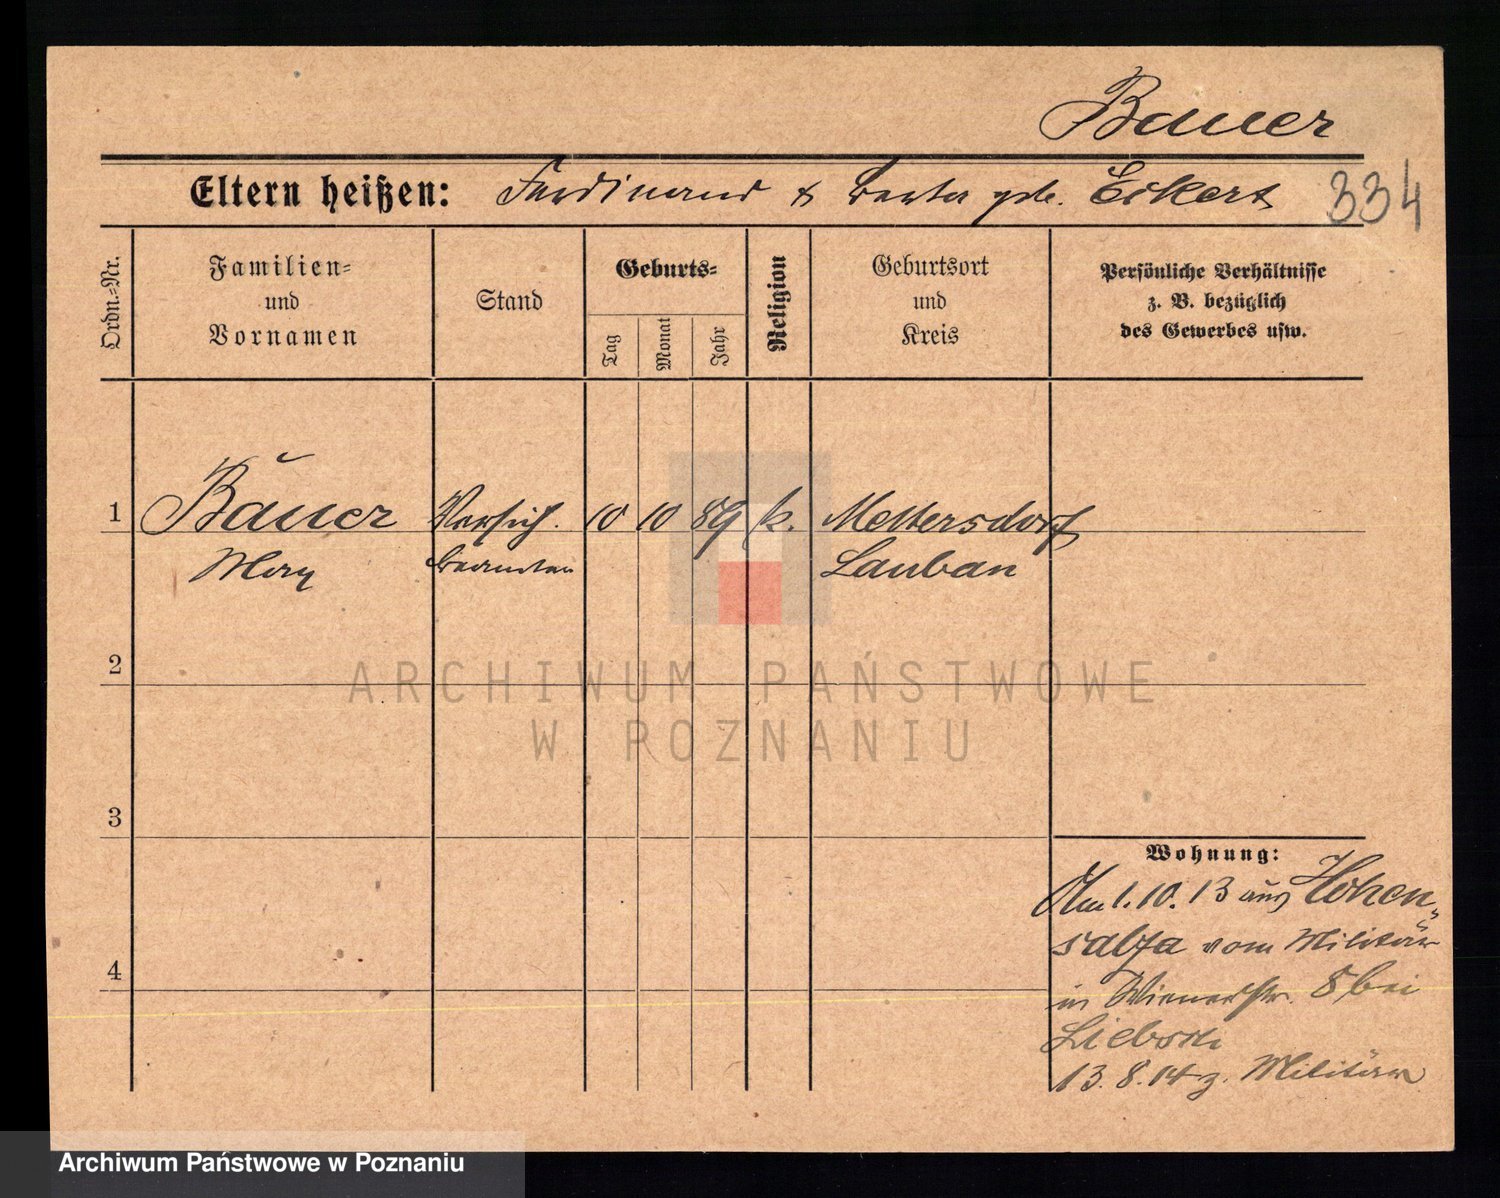 Bauer
Eltern heißen: Ferdinand & Berta geb. Eckert 334
Ordn.-Nr.
Familien- und Vornamen
Stand
Geburts-
Tag
Monat
Jahr
Religion
Geburtsort und Kreis
Persönliche Verhältnisse
z. B. bezüglich
des Gewerbes usw.
1 Bauer Versich. 10 10 89 k. Mettersdorf
Max beamter Lauban
2
3
4
Wohnung:
Am 1.10.13 aus Hohen-
salza vom Militär
in Wienerstr. 8 bei
Liebsch
13.8.14 z. Militär
ARCHIWUM PAŃSTWOWE
W POZNANIU
Archiwum Państwowe w Poznaniu